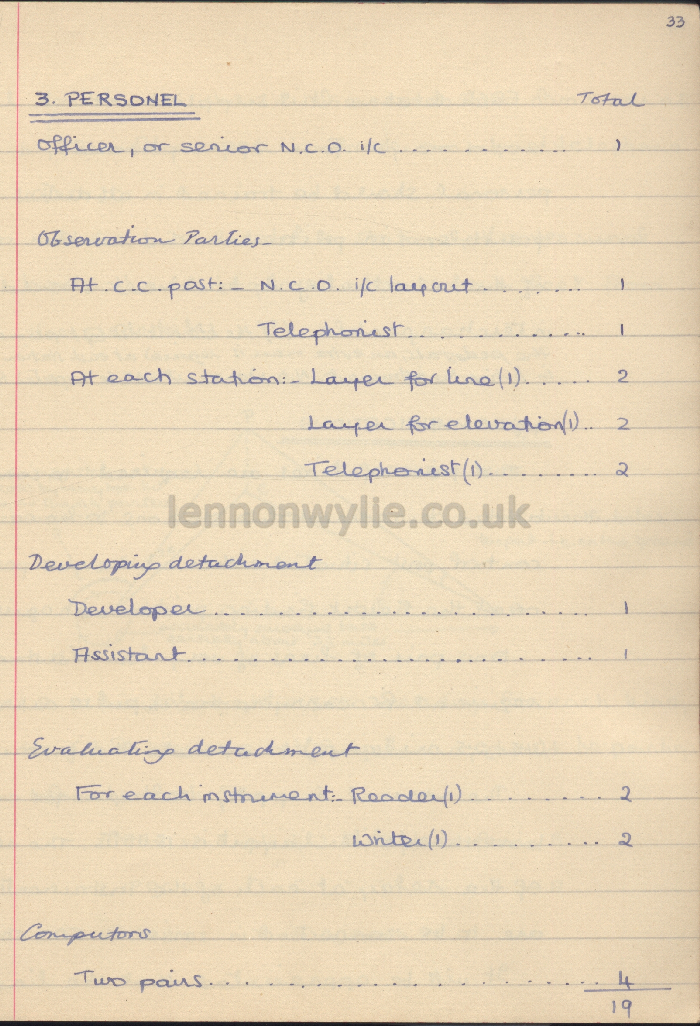 33
3. PERSONEL Total
Officer, or senior N.C.O. i/c ............ 1
Observation Parties-
At C.C. post:- N.C.O. i/c layout ....... 1
Telephonist............ 1
At each station:- Layer for line (1)..... 2
Layer for elevation(1).. 2
Telephonist (1)........ 2
lennonwylie.co.uk
Developing detachment
Developer......................... 1
Assistant........................... 1
Evaluating detachment
For each instrument:- Reader(1).......... 2
Writer(1)........... 2
Computors
Two pairs......................... 4
19